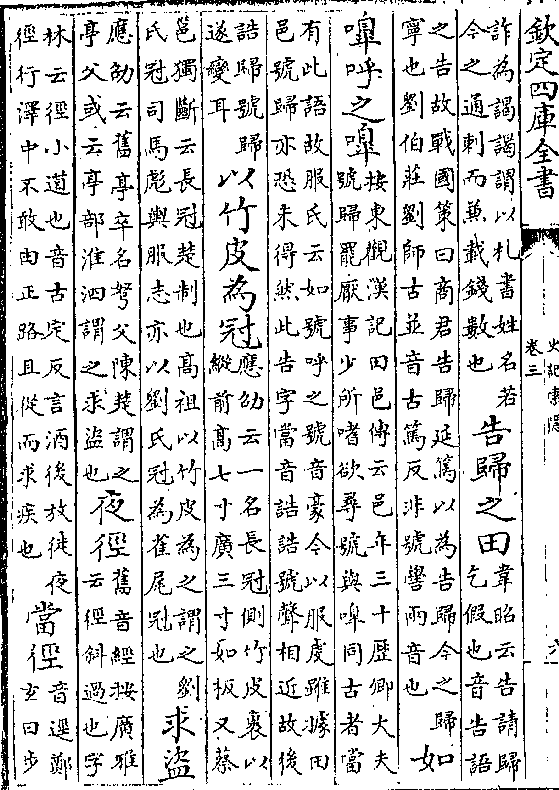 欽定四庫全書
史記索隱
卷三
詐為謁謁謂以札書姓名若
今之通刺而兼載錢數也
告歸之田
韋昭云告請歸
乞假也音告語
之告故戰國策曰商君告歸延篤以為告歸今之歸
寧也劉伯莊劉師古並音古篤反非號嚳兩音也
如
嘷呼之嘷
按東觀漢記田邑傳云邑年三十歴卿大夫
號歸罷厭事少所嗜欲尋號與嘷同古者當
有此語故服氏云如號呼之號音豪今以服虔雖據田
邑號歸亦恐未得然此告字當音誥誥號聲相近故後
誥歸號歸
遂變耳
以竹皮為冠
應劭云一名長冠側竹皮裹以
縱前高七寸廣三寸如板又蔡
邕獨斷云長冠楚制也高祖以竹皮為之謂之劉
氏冠司馬彪輿服志亦以劉氏冠為雀尾冠也
求盜
應劭云舊亭卒名弩父陳楚謂之
亭父或云亭部淮泗謂之求盜也
夜徑
舊音經按廣雅
云徑斜過也字
林云徑小道也音古定反言酒後放徒夜
徑行澤中不敢由正路且從而求疾也
當徑
音逕鄭
玄曰步